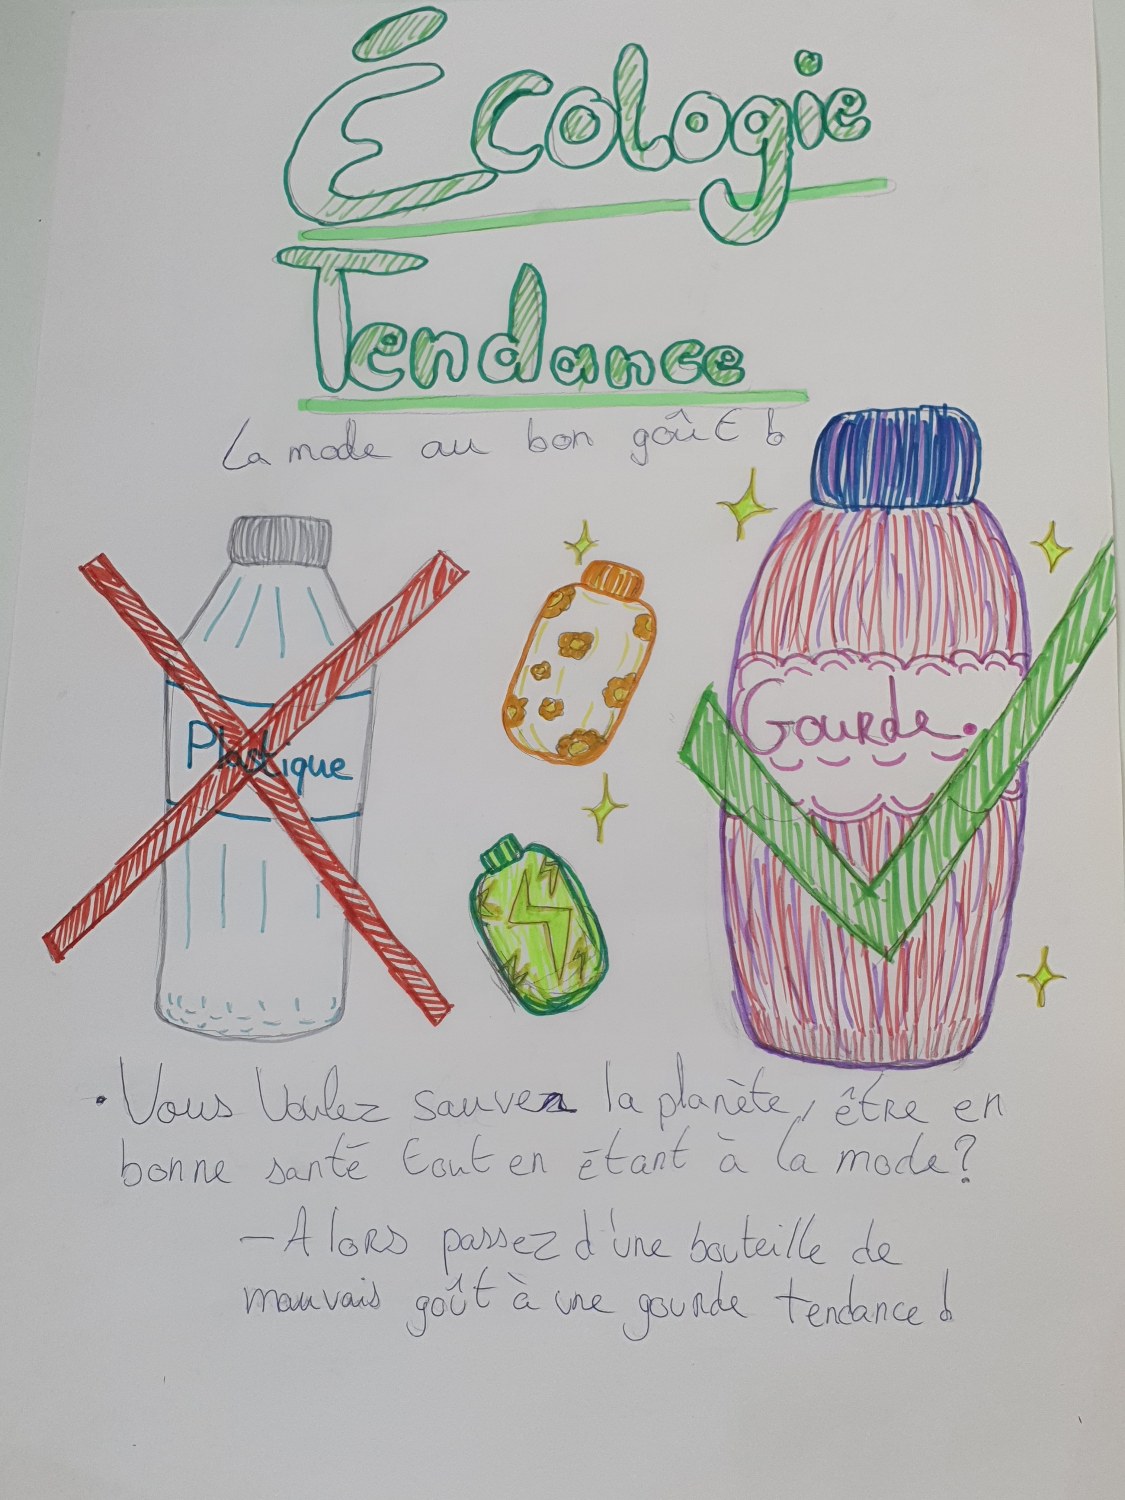 Écologie
Tendance
La mode au bon goût !
Plastique
Gourde.
• Vous Voulez sauver la planète, être en
bonne santé tout en étant à la mode ?
– Alors passez d'une bouteille de
mauvais goût à une gourde tendance !